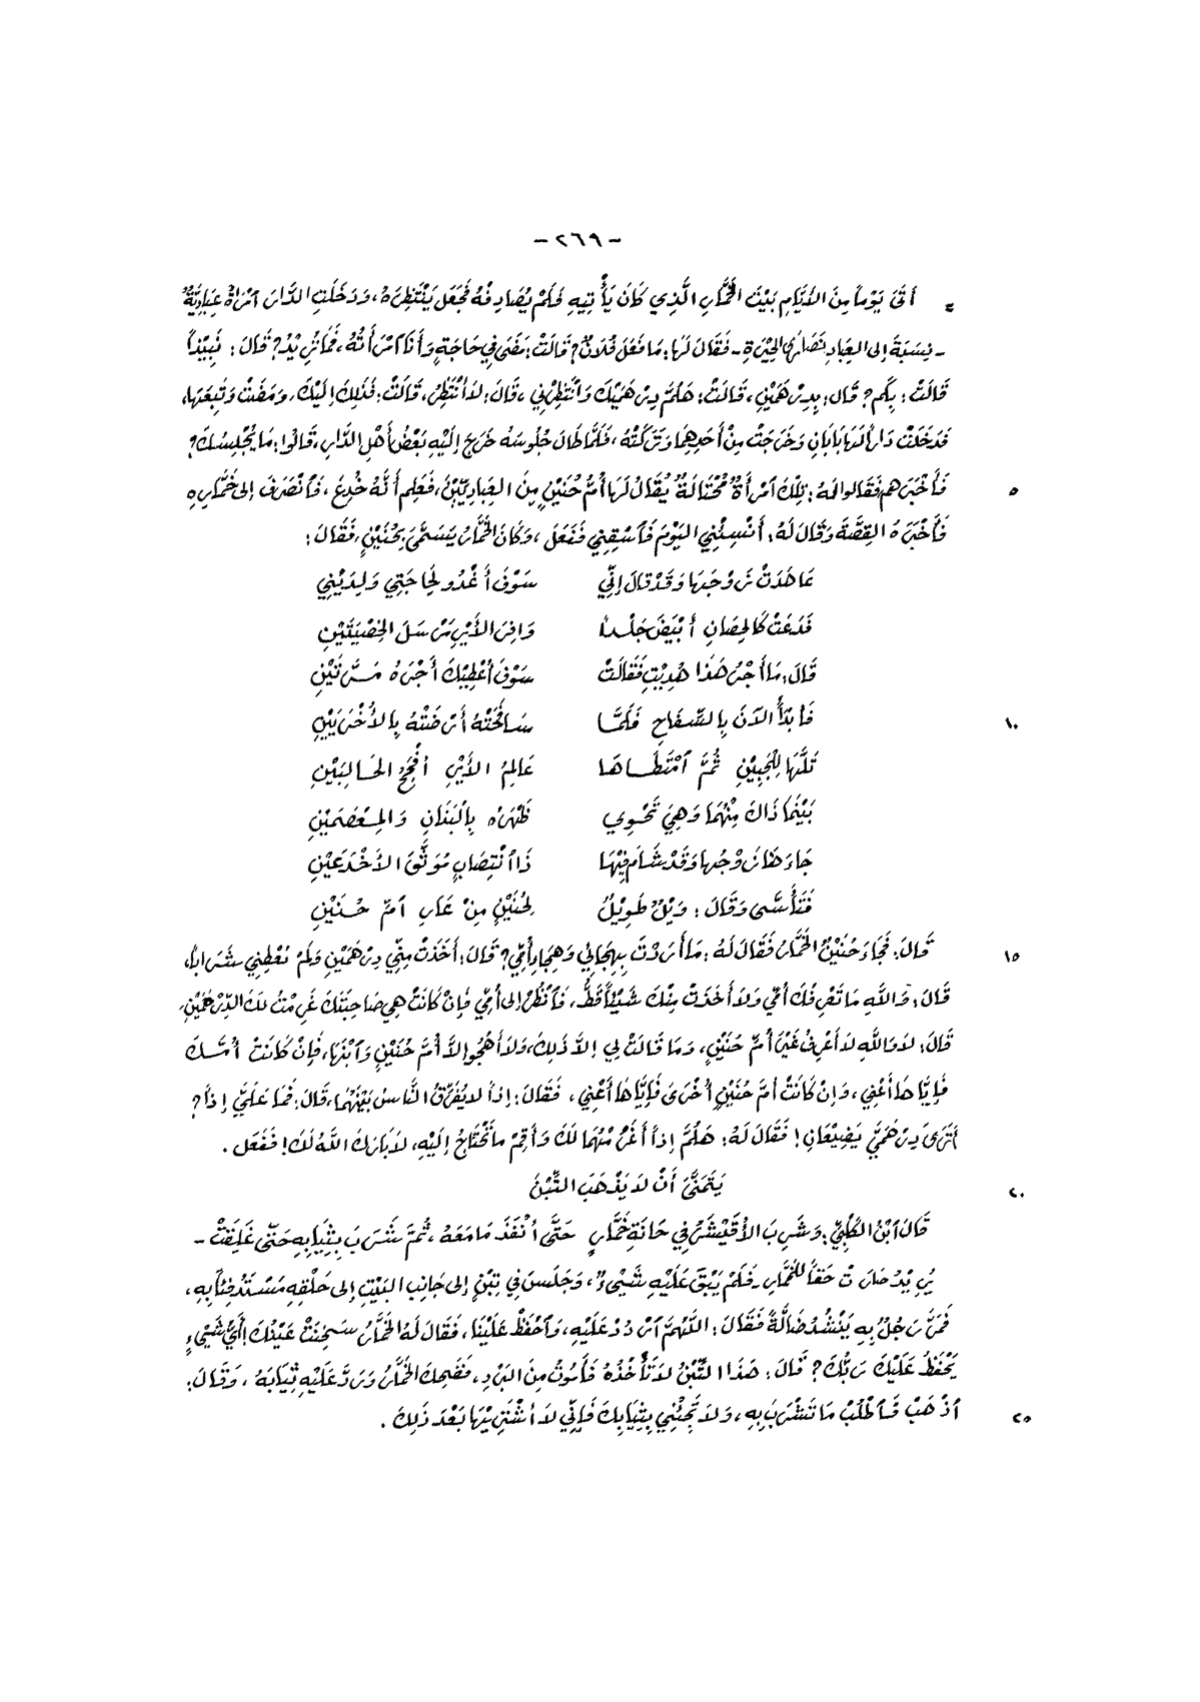 -٢٦٩-
= أَتَى يَوْماً مِنَ الأَيَّامِ بَيْتَ الخَمَّارِ الَّذِي كَانَ يَأْتِيهِ فَلَمْ يُصَادِفْهُ فَجَعَلَ يَنْتَظِرَهُ، وَدَخَلَتِ الدَّارَ اٌمْرَأةٌ عِبَادِيَّةٌ
- نِسبَةً إلى العِبَادِ نَصَارَى الحِيْرَةِ - فَقَالَ لَهَا: مَا فَعَلَ فُلَانٌ؟ قَالَتْ: مَضَى فِي حَاجَةٍ وَأَنَا اٌمْرَأَتُهُ، فَمَا تُرِيْدُ؟ قَالَ: نَبِيْذاً
قَالَتْ: بِكَم؟ قَالَ: بِدِرْهَمَيْنِ، قَالَتْ: هَلُمَّ دِرْهَمَيْكَ وَاٌنْتَظِرْنِي، قَالَ: لاَ أَنْتَظِرُ، قَالَتْ: فَذَلِكَ إِلَيْكَ، وَمَضَتْ وَتَبِعَهَا،
فَدَخَلَتْ دَاراً لَهَا بَابَانِ وَخَرَجَتْ مِنْ أَحَدِهِمَا وَتَرَكَتْهُ، فَلَمَّا طَالَ جُلُوسُهُ خَرَجَ إِلَيْهِ بَعْضُ أَهْلِ الدَّارِ، قَالُوا: مَا يُجْلِسُكَ؟
٥ فَأَخْبَرَهم فَقَالوا لهُ: تِلْكَ اٌمْرَأَةٌ مُحْتَالَةٌ يُقَالُ لَهَا أُمُّ حُنَيْنٍ مِنَ العِبَادِيِّيْنَ، فَعَلِمَ أَنَّهُ خُدِعَ، فَاٌنْصَرَفَ إلى خَمَّارِهِ
فَأَخْبَرَهُ القِصَّةَ وَقَالَ لَهُ: أَنْسِئْنِي اليَوْمَ فَاٌسْقِنِي فَفَعَلَ، وَكَانَ الخَمَّارُ يَسَمَّى بِحُنَيْنٍ، فَقَالَ:
عَاهَدَتْ زَوْجَهَا وَقَدْ قَالَ إِنِّي سَوْفَ أَغْدُو لِحَاجَتِي وَلِدَيْنِي
فَدَعَتْ كَالحِصَانِ أَبْيَضَ جَلْداً وَافِرَ الأَيْرِ مُرْسَلَ الخِصْيَتَيْنِ
قَالَ: مَا أَجْرُ هَذَا هُدِيْتِ فَقَالَتْ سَوْفَ أُعْطِيْكَ أَجْرَهُ مَرَّتَيْنِ
١٠ فَابْدَأِ الآنَ بِالسِّفَاحِ فَلَمَّا سَافَحَتْهُ أَرْضَتْهُ بِالأُخْرَيَيْنِ
تَلَّهَا لِلْجَبِيْنِ ثُمَّ اٌمْتَطَاهَا عَالِمُ الأَيْرِ أَفْحَجُ الحَالِبَيْنِ
بَيْنَمَا ذَاكَ مِنْهُمَا وَهْيَ تَحْوِي ظَهْرَهُ بِالْبَنَانِ وَالمِعْصَمَيْنِ
جَاءَهَا زَوْجُها وَقَدْ شَامَ فِيْهَا ذَا اٌنْتِصَابٍ مُوَثَّقَ الأَخْدَعَيْنِ
فَتَأَسَّى وَقَالَ: وَيْلٌ طَوِيْلٌ لِحُنَيْنٍ مِنْ عَارِ اٌمِّ حُنَيْنِ
١٥ قَالَ: فَجَاءَ حُنَيْنٌ الخَمَّارُ فَقَالَ لَهُ: مَا أَرَدْتَ بِهِجَائِي وَهِجَاءِ أُمِّي؟ قَالَ: أَخَذَتْ مِنِّي دِرْهَمَيْنِ وَلَمْ تُعْطِنِي شَرَاباً،
قَالَ: وَاللَّهِ مَا تَعْرِفُكَ أُمِّي وَلاَ أَخَذَتْ مِنْكَ شَيْئاً قَطُّ، فَاٌنْظُرْ إلى أُمِّي فَإِنْ كَانَتْ هِيَ صَاحِبَتَكَ غَرِمْتُ لَكَ الدِّرْهَمَيْنِ،
قَالَ: لاَ وَاللَّهِ لاَ أَعْرِفُ غَيْرَ أُمِّ حُنَيْنٍ، وَمَا قَالَتْ لِي إِلاَّ ذَلِكَ، وَلاَ أَهْجُو إِلاَّ أُمَّ حُنَيْنٍ وَاٌبْنَهَا، فَإِنْ كَانَتْ أُمُّكَ
فَإِيَّاهَا أَعْنِي، وَإِنْ كَانَتْ أُمَّ حُنَيْنٍ أُخْرَى فَإِيَّاهَا أَعْنِي، فَقَالَ: إِذاً لاَ يُفَرِّقُ النَّاسُ بَيْنَهُمَا، قَالَ: فَمَا عَلَيَّ إِذاً؟
أَتَرَى دِرْهَمَيَّ يَضِيْعَانِ! فَقَالَ لَهُ: هَلُمَّ إِذاً أَغْرَمْهُمَا لَكَ وَأَقِمْ مَا تَحْتَاجُ إِلَيْهِ، لاَ بَارَكَ اللَّهُ لَكَ! فَفَعَلَ.
٢٠ يَتَمَنَّى أَنْ لاَ يَذْهَبَ التِّبْنُ
قَالَ اٌبْنُ الكَلْبِيِّ: وَشَرِبَ الأُقَيْشَرُ فِي حَانَةِ خَمَّارٍ حَتَّى أَنْفَذَ مَا مَعَهُ، ثُمَّ شَرِبَ بِثِيَابِهِ حَتَّى غَلِقَتْ -
يُرِيْدُ صَارَتْ حَقاً لِلْخَمَّارِ - فَلَمْ يَبْقَ عَلَيْهِ شَيْىءٌ، وَجَلَسَ فِي تِبْنٍ إلى جَانِبِ البَيْتِ إلى حَلْقِهِ مَسْتَدْفِئاً بِهِ،
فَمَرَّ رَجُلٌ بِهِ يَنْشُدُ ضَالَّةً فَقَالَ: اللَّهُمَّ اٌرْدُدْ عَلَيْهِ، وَاٌحْفَظْ عَلَيْنَا، فَقَالَ لَهُ الخَمَّارُ سَخِنَتْ عَيْنُكَ! أَيُّ شَيْىءٍ
يَحْفَظُ عَلَيْكَ رَبُّكَ؟ قَالَ: هَذَا التِّبْنُ لاَ تَأْخُذْهُ فَأَمُوتُ مِنَ البَرْدِ، فَضَحِكَ الخَمَّارُ وَرَدَّ عَلَيْهِ ثِيَابَهُ، وَقَالَ:
٢٥ اٌذْهَبْ فَاٌطْلُبْ مَا تَشْرَبُ بِهِ، وَلاَ تَجِئْنِي بِثِيَابِكَ فَإِنِّي لاَ أَشْتَرِيْهَا بَعْدَ ذَلِكَ.